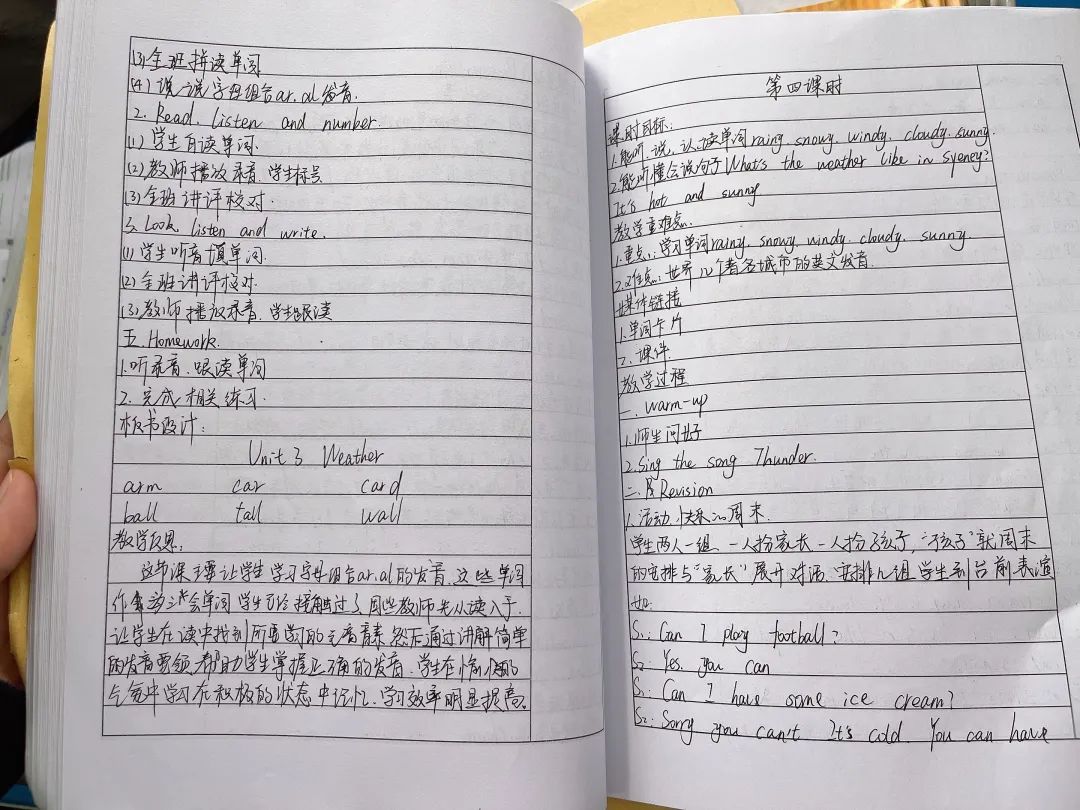 (3)全班拼读单词
(4)说一说字母组合ar.al发音.
2. Read. listen and number.
(1)学生自读单词.
(2)教师播放录音.学生标号
(3)全班讲评校对.
3. Look, listen and write.
(1)学生听音填单词.
(2)全班讲评校对.
(3)教师播放录音.学生跟读
五.Homework.
1.听录音.跟读单词
2.完成相关练习.
板书设计:
Unit 3 Weather
arm car card
ball tall wall
教学反思:
这节课主要让学生学习字母组合ar.al的发音.这些单词
作为 单词学生 接触过了.因此教师先从读入手.
让学生在读中找到所要学习的元音音素.然后通过讲解简单
的发音要领.帮助学生掌握正确的发音.学生在愉悦的
气氛中学习在积极的状态中记忆.学习效率明显提高。
第四课时
课时目标:
1.能听.说.认.读单词rainy. snowy. windy. cloudy. sunny.
2.能听懂会说句子What's the weather like in Syeney?
It's hot and sunny.
教学重难点:
1.重点:学习单词rainy. snowy. windy. cloudy. sunny.
2.难点:世界12个著名城市的英文发音.
媒体链接
1.单词卡片
2.课件
教学过程
一. warm-up
1.师生问好
2.Sing the song Thunder.
二. Revision
1.活动.快乐的周末.
学生两人一组.一人扮家长.一人扮孩子,“孩子”就周末
的安排与“家长”展开对话.安排几组学生到台前表演
如:
S1: Can I play football?
S2: Yes. you can
S1: Can I have some ice cream?
S2: Sorry you can't It's cold. You can have